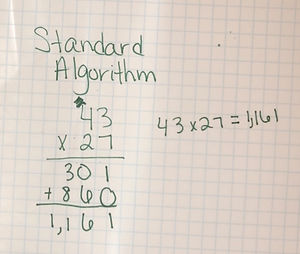 Standard
Algorithm
43
x 27
301
+ 860
1,161
43 x 27 = 1,161